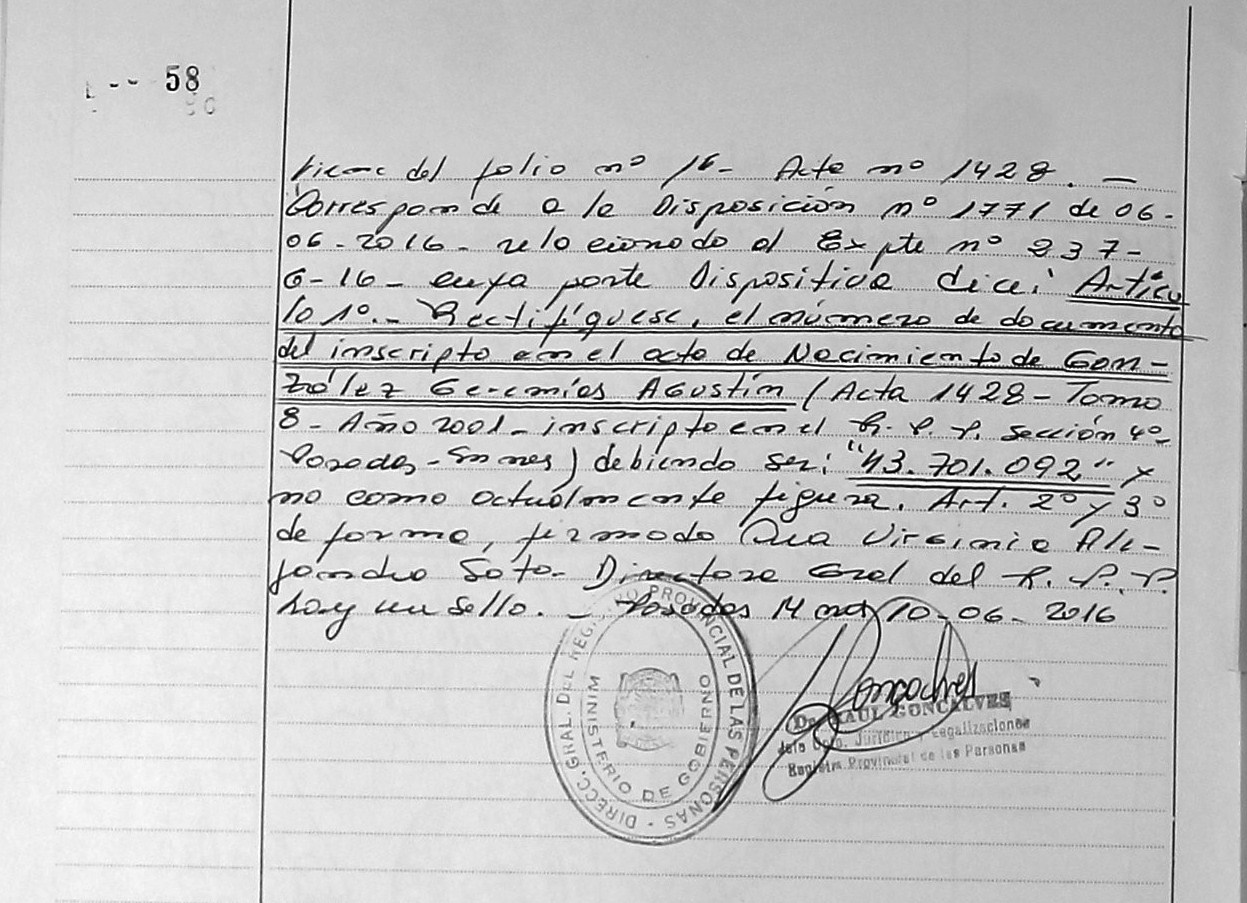 58
Viene del folio nº 16- Acta nº 1428. —
Corresponde a la Disposición nº 1771 de 06-
06-2016- relacionado al Expte nº 237-
G-16- cuya parte Dispositiva dice: Artícu
lo 1º.- Rectifíquese, el número de documento
del inscripto en el acta de Nacimiento de Gon-
zález Geremías Agustín (Acta 1428-Tomo
8- Año 2001- inscripto en el R. P. P. Sección 4º-
Posadas-Mnes) debiendo ser: "43.701.092" y
no como actualmente figura. Art. 2º y 3º
de forma, firmado Dra Virginia Ale-
jandra Soto- Directora Gral del R. P. P.
hay un sello. - Posadas 10-06-2016
DIRECC. GRAL. DEL REGISTRO PROVINCIAL DE LAS PERSONAS -
MINISTERIO DE GOBIERNO
Goncalves
Dr. RAUL GONCALVES
Jefe Dpto. Jurídico y Legalizaciones
Registro Provincial de las Personas